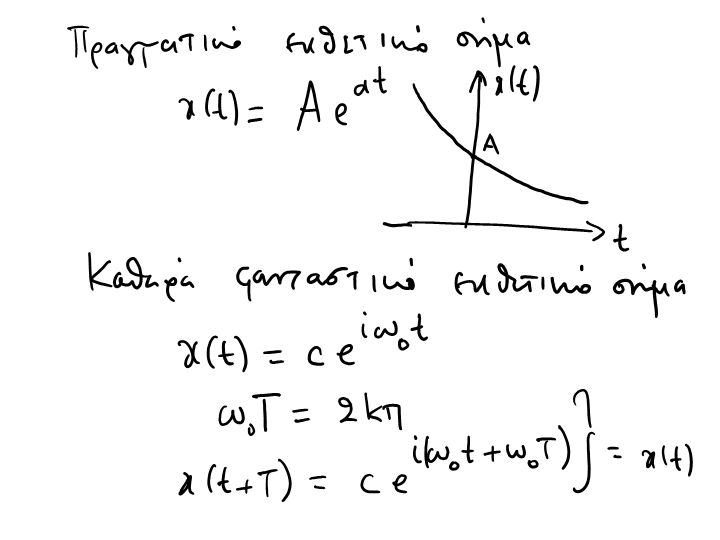 Πραγματικό εκθετικό σήμα
x(t) = A e^{at}
x(t)
A
t
Καθαρά φανταστικό εκθετικό σήμα
x(t) = c e^{iω₀t}
ω₀T = 2kπ
x(t+T) = c e^{i(ω₀t + ω₀T)} } = x(t)